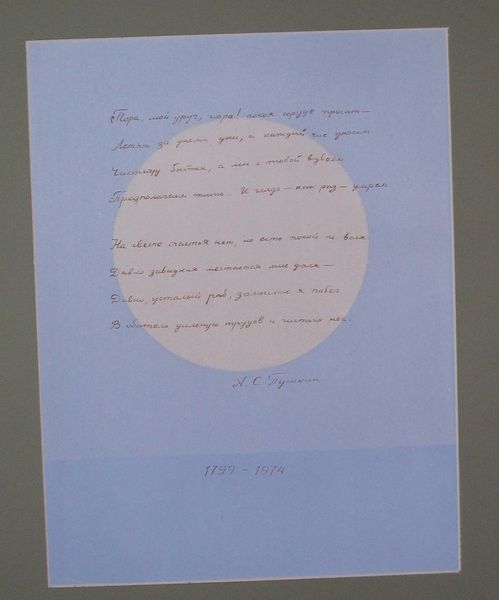 Пора, мой друг, пора! покоя сердце просит—
Летят за днями дни, и каждый час уносит
Частичку бытия, а мы с тобой вдвоём
Предполагаем жить... И глядь — как раз — умрем
На свете счастья нет, но есть покой и воля.
Давно завидная мечтается мне доля —
Давно, усталый раб, замыслил я побег
В обитель дальную трудов и чистых нег.
А. С. Пушкин
1799 - 1974